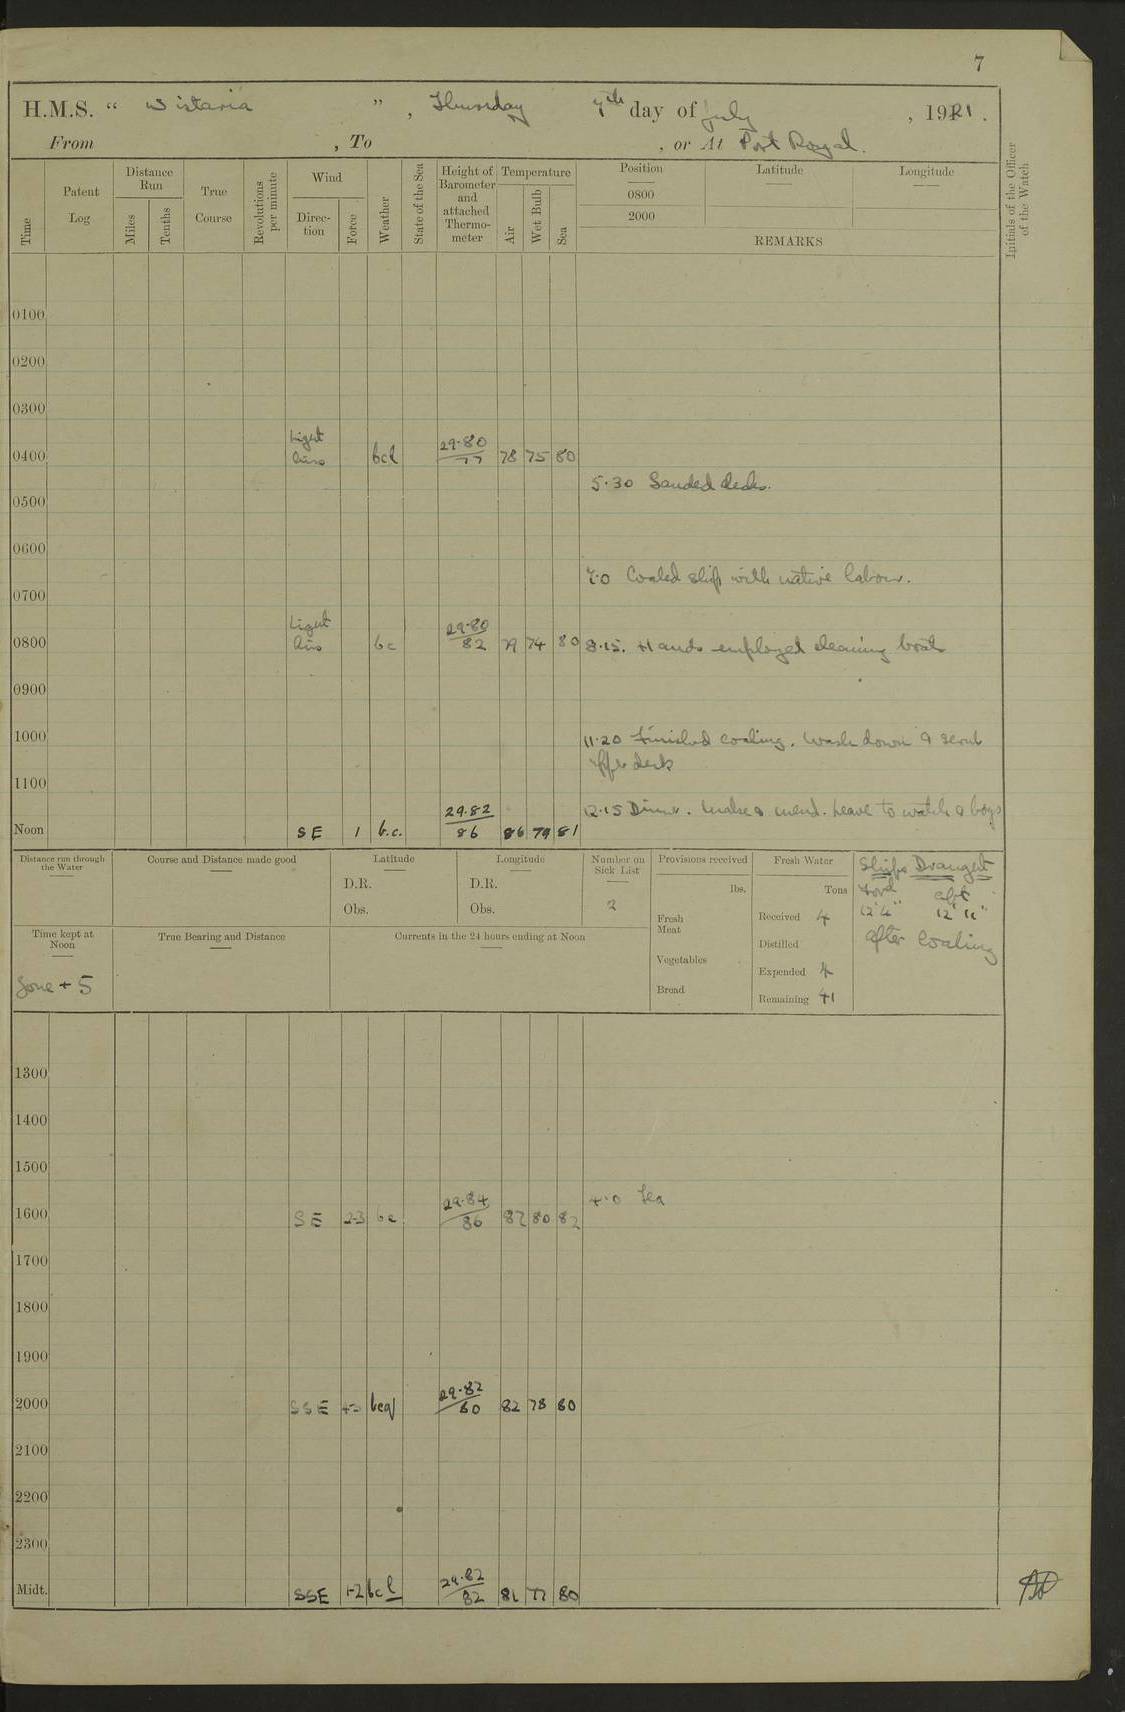 7
H.M.S. “ Wistaria ” , Thursday 7th day of July , 1921 .
From , To , or At Port Royal.
Time
Patent Log
Distance Run
Miles
Tenths
True Course
Revolutions per minute
Wind
Direc-tion
Force
Weather
State of the Sea
Height of Barometer and attached Thermo-meter
Temperature
Air
Wet Bulb
Sea
Position
0800
2000
Latitude
Longitude
REMARKS
Initials of the Officer of the Watch
0100
0200
0300
0400 Light Airs bcl 29.80 77 78 75 80
5.30 Sanded decks.
0500
0600
7.0 Coaled ship with native labour.
0700
0800 Light Airs bc 29.80 82 79 74 80 8.15. Hands employed cleaning boats
0900
1000 11.20 Finished coaling. Wash down & scrub
upper deck
1100
12.15 Dinner. Make & mend. Leave to watch & boys
Noon SE 1 b.c. 29.82 86 86 79 81
Distance run through the Water
Course and Distance made good
Latitude
D.R.
Obs.
Longitude
D.R.
Obs.
Number on Sick List
2
Provisions received
lbs.
Fresh Meat
Vegetables
Bread
Fresh Water
Tons
Received 4
Distilled
Expended 4
Remaining 41
Ships Draught
Ford aft
12' 11"
after Coaling
Time kept at Noon
Zone + 5
True Bearing and Distance
Currents in the 24 hours ending at Noon
1300
1400
1500
4.0 Tea
1600 SE 2-3 bc 29.84 86 87 80 82
1700
1800
1900
2000 SSE bcq 29.82 80 82 78 80
2100
2200
2300
Midt. SSE 1-2 bcl 29.82 82 81 77 80